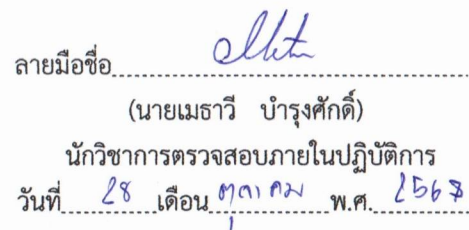 ลายมือชื่อ
(นายเมธาวี บำรุงศักดิ์)
นักวิชาการตรวจสอบภายในปฏิบัติการ
วันที่ 28 เดือน ตุลาคม พ.ศ. 2567